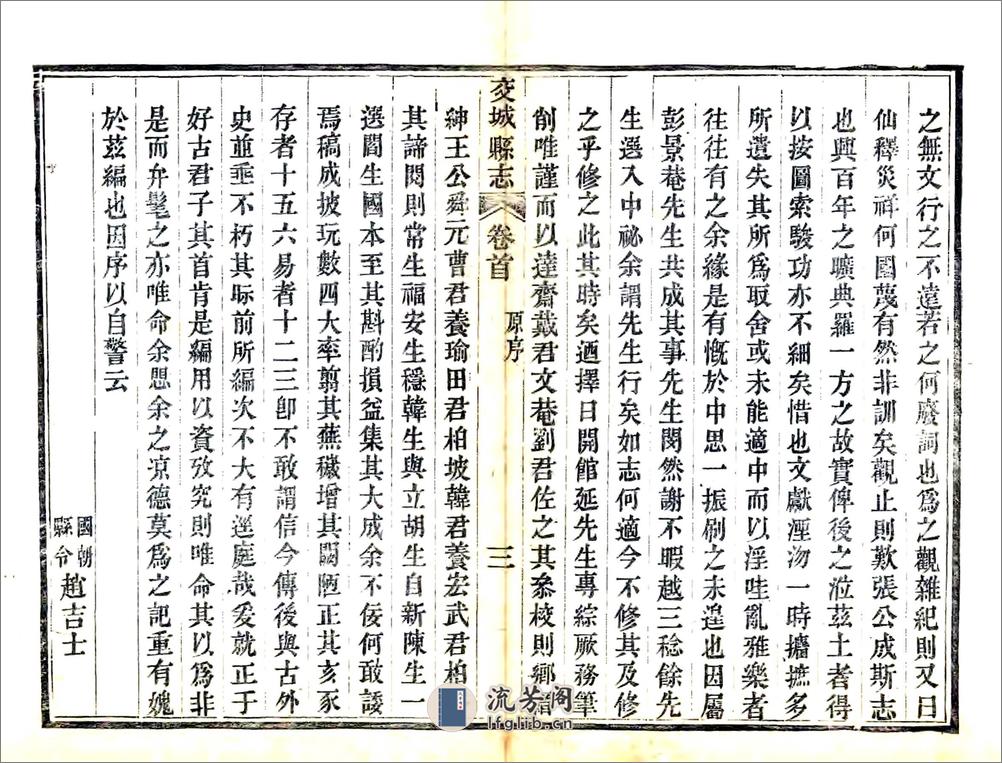 之無文行之不遠若之何廢詞也為之觀雜紀則又曰
仙釋災祥何園蔑有然非訓矣觀止則歎張公成斯志
也興百年之曠典羅一方之故實俾後之涖茲土者得
以按圖索駿功亦不細矣惜也文獻湮沕一時攟摭多
所遺失其所為取舍或未能適中而以淫哇亂雅樂者
往往有之余緣是有慨於中思一振刷之未遑也因屬
彭景菴先生共成其事先生閔然謝不暇越三稔餘先
生選入中祕余謂先生行矣如志何適今不修其及修
之乎修之此其時矣迺擇日開館延先生專綜厥務筆
削唯謹而以達齋戴君文菴劉君佐之其叅校則鄉
紳王公舜元曹君養瑜田君柏坡韓君養宏武君柏
其諦閱則常生福安生穩韓生與立胡生自新陳生一
選閻生國本至其斟酌損益集其大成余不佞何敢諉
焉稿成披玩數四大率翦其蕪穢增其闕陋正其亥豕
存者十五六易者十二三卽不敢謂信今傳後與古外
史並垂不朽其眎前所編次不大有逕庭哉爰就正于
好古君子其首肯是編用以資攷究則唯命其以為非
是而弁髦之亦唯命余思余之凉德莫為之記重有媿
於茲編也因序以自警云
國朝
縣令
趙吉士
交城縣志
卷首
原序
三
流芳閣
lfglib.cn